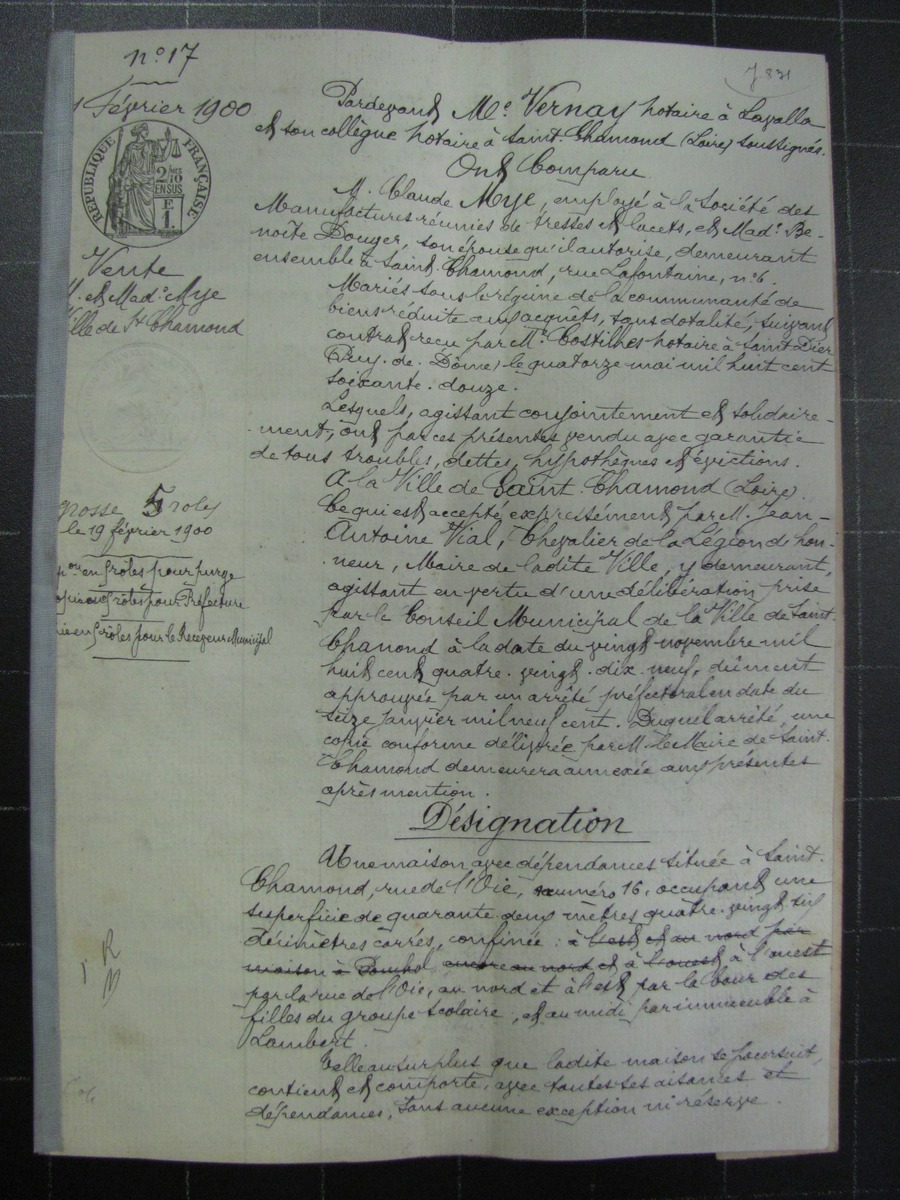 n° 17
J 831
1 Février 1900
RÉPUBLIQUE FRANÇAISE
2/10 EN SUS
F 1
Vente
M. et Mad° Mye
Ville de St Chamond
grosse 5 roles
le 19 février 1900
en roles pour purge
roles pour Préfecture
roles pour le Receveur Municipal
Pardevant Me. Vernay notaire à Lavalla
et son collègue notaire à Saint-Chamond (Loire) soussignés.
Ont Comparu
M. Claude Mye, employé à la Société des
Manufactures réunies de tresses et lacets, et Mad° Be-
noîte Douger, son épouse qu'il autorise, demeurant
ensemble à Saint-Chamond, rue Lafontaine, n° 6.
Mariés sous le régime de la communauté de
biens réduite aux acquêts, sans dotalité, suivant
contrat reçu par Me Costilhes notaire à Saint Dier
(Puy-de-Dôme) le quatorze mai mil huit cent
soixante-douze.
Lesquels, agissant conjointement et solidaire-
ment, ont par ces présentes vendu avec garantie
de tous troubles, dettes, hypothèques et évictions.
A la Ville de Saint-Chamond (Loire)
Ce qui est accepté expressément par M. Jean-
Antoine Vial, Chevalier de la Légion d'hon-
neur, Maire de ladite Ville, y demeurant,
agissant en vertu d'une délibération prise
par le Conseil Municipal de la Ville de Saint-
Chamond à la date du vingt novembre mil
huit cent quatre-vingt-dix-neuf, dûment
approuvée par un arrêté préfectoral en date du
seize janvier mil neuf cent. Duquel arrêté, une
copie conforme délivrée par M. le Maire de Saint-
Chamond demeurera annexée aux présentes
après mention.
Désignation
Une maison avec dépendances située à Saint-
Chamond, rue de l'Oie, numéro 16, occupant une
superficie de quarante deux mètres quatre-vingt six
décimètres carrés, confinée : à l'est et au nord par
maison à encore au nord et à l'ouest à l'ouest
par la rue de l'Oie, au nord et à l'est par la cour des
filles du groupe scolaire, et au midi par immeuble à
Lambert.
Telle au surplus que ladite maison se poursuit,
contient et comporte, avec toutes ses aisances et
dépendances, sans aucune exception ni réserve.